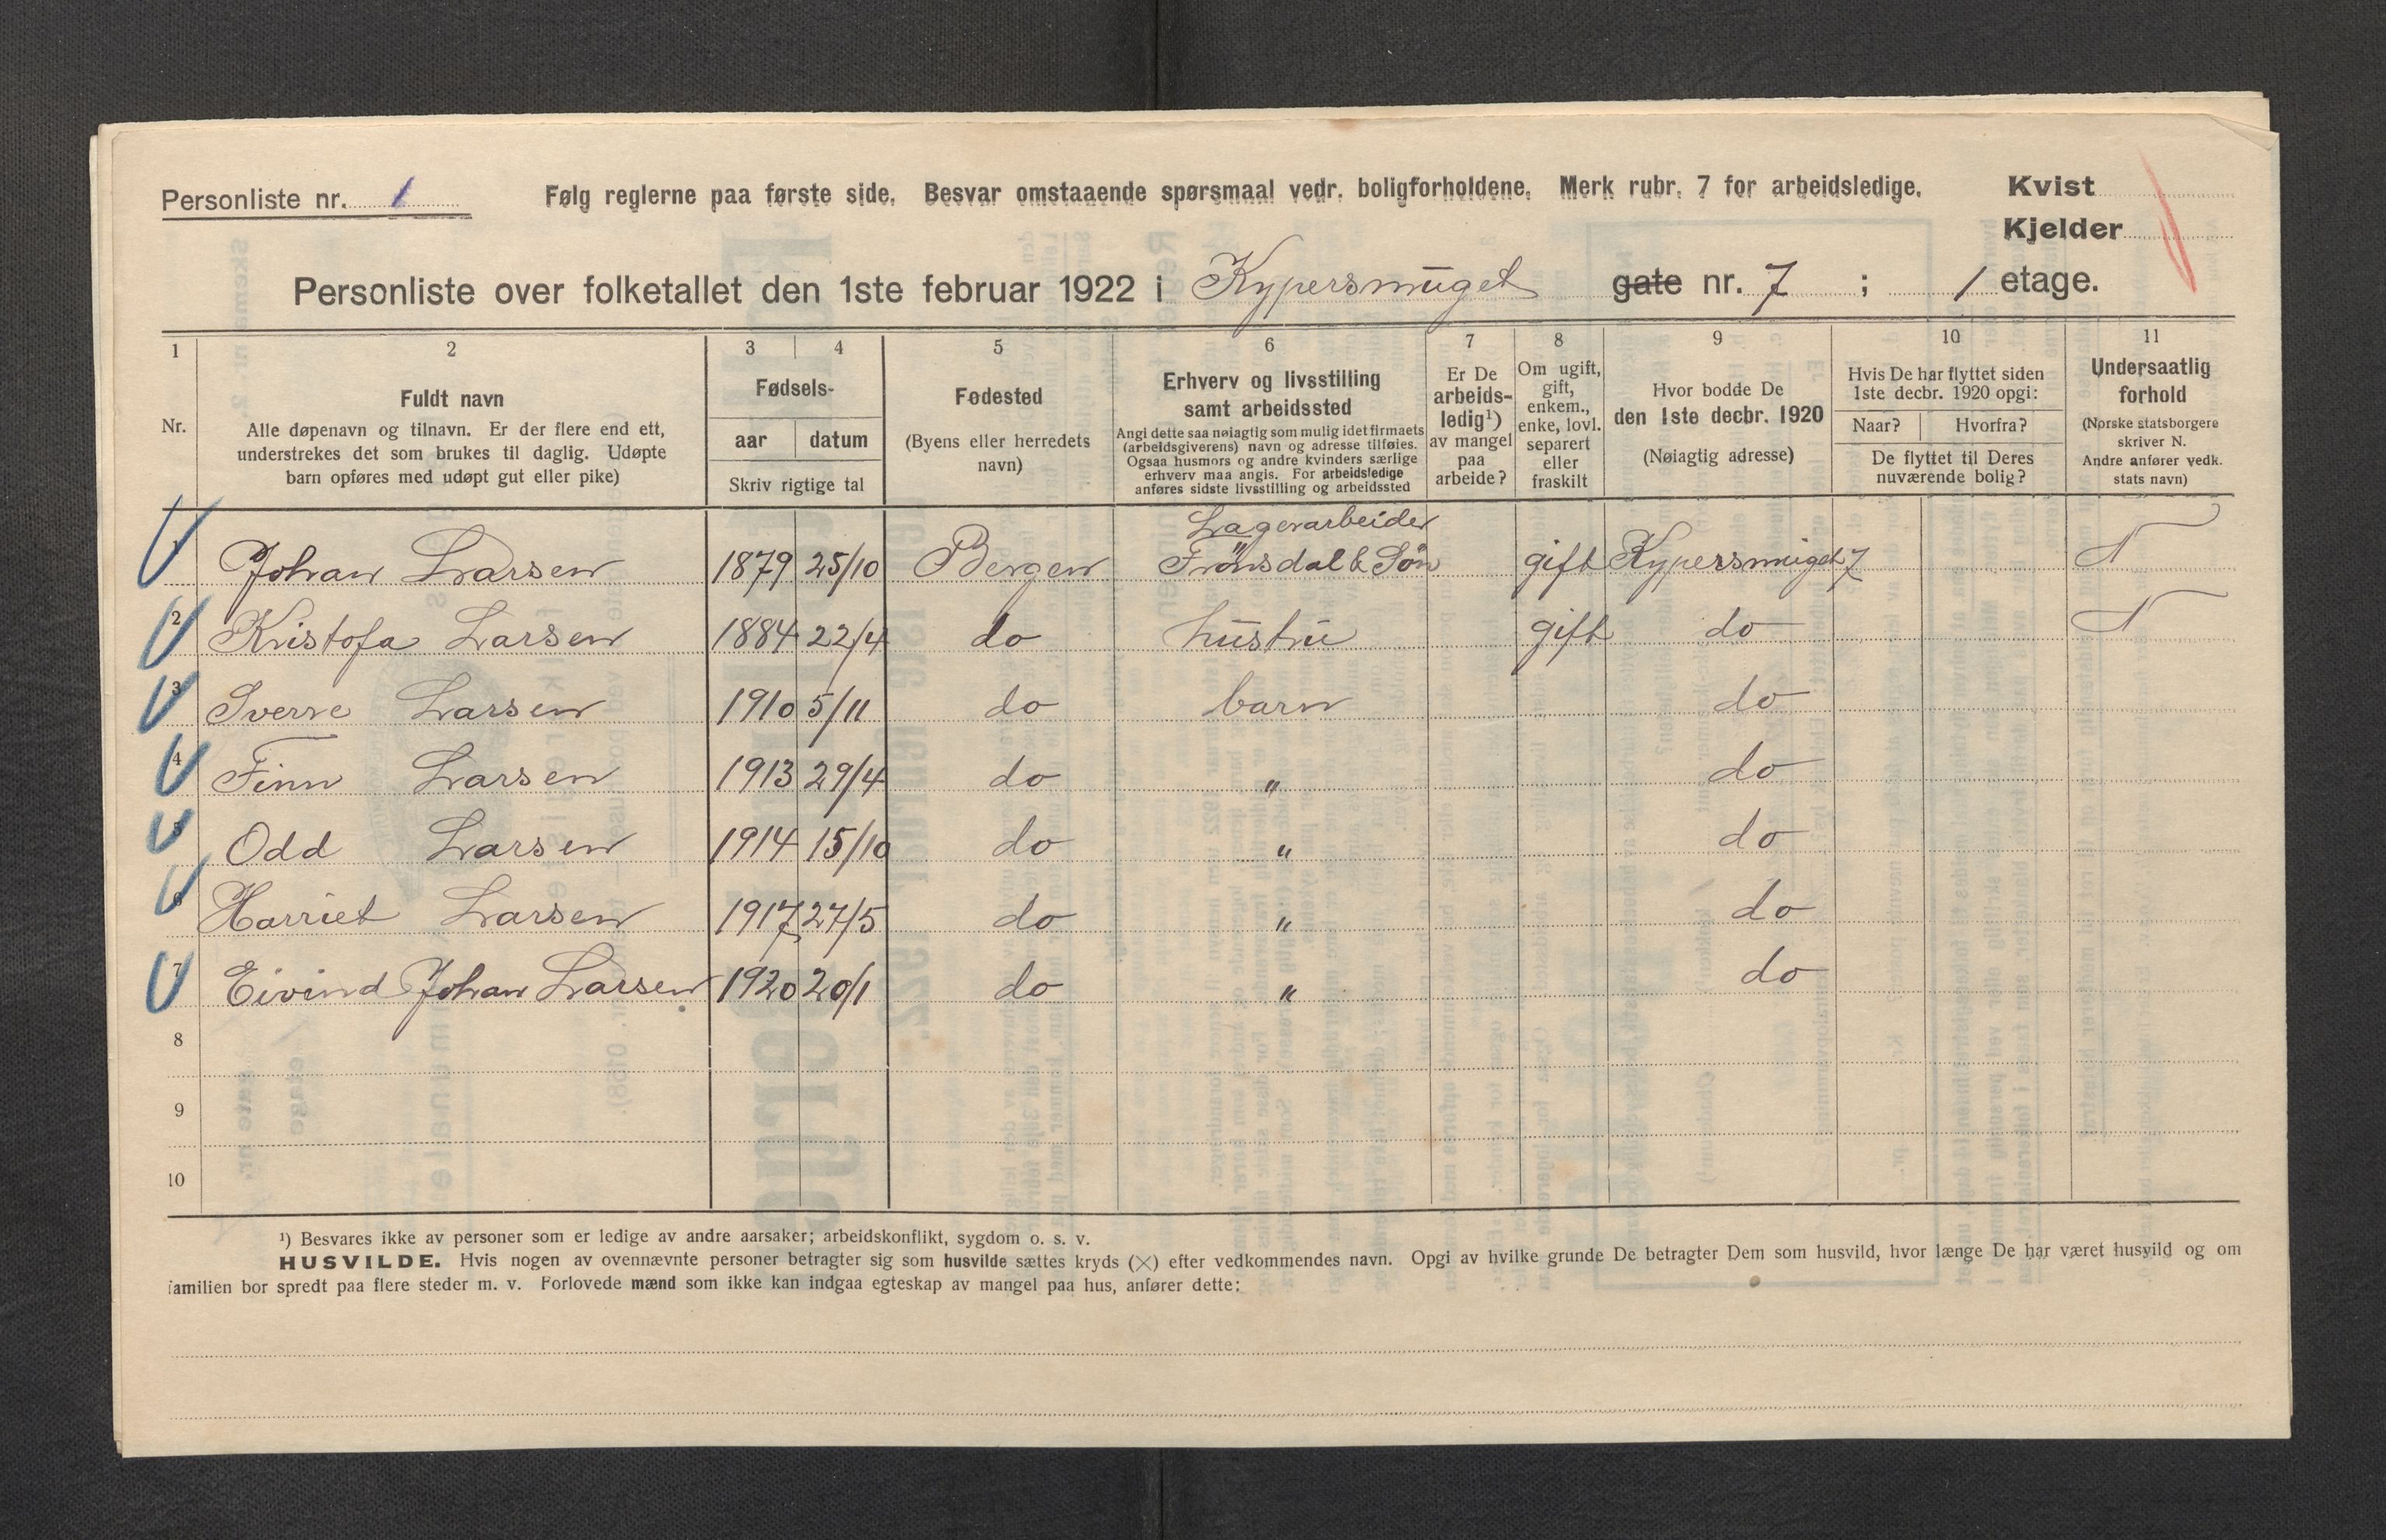 Personliste nr. 1
Følg reglerne paa første side. Besvar omstaaende spørsmaal vedr. boligforholdene. Merk rubr. 7 for arbeidsledige.
Kvist
Kjelder
Personliste over folketallet den 1ste februar 1922 i Kypersmuget gate nr. 7 ; 1 etage.
1 2 3 4 5 6 7 8 9 10 11
Nr.
Fuldt navn
Alle døpenavn og tilnavn. Er der flere end ett,
understrekes det som brukes til daglig. Udøpte
barn opføres med udøpt gut eller pike)
Fødsels-
aar datum
Skriv rigtige tal
Fødested
(Byens eller herredets
navn)
Erhverv og livsstilling
samt arbeidssted
Angi dette saa nøiagtig som mulig idet firmaets
(arbeidsgiverens) navn og adresse tilføies.
Ogsaa husmors og andre kvinders særlige
erhverv maa angis. For arbeidsledige
anføres sidste livsstilling og arbeidssted
Er De
arbeids-
ledig¹)
av mangel
paa
arbeide?
Om ugift,
gift,
enkem.,
enke, lovl.
separert
eller
fraskilt
Hvor bodde De
den 1ste decbr. 1920
(Nøiagtig adresse)
Hvis De har flyttet siden
1ste decbr. 1920 opgi:
Naar? Hvorfra?
De flyttet til Deres
nuværende bolig?
Undersaatlig
forhold
(Norske statsborgere
skriver N.
Andre anfører vedk.
stats navn)
Lagerarbeider
1 Johan Larsen 1879 25/10 Bergen Frønsdal & Søn gift Kypersmuget 7 N
2 Kristofa Larsen 1884 22/4 do hustru gift do N
3 Sverre Larsen 1910 5/11 do barn do
4 Finn Larsen 1913 29/4 do " do
5 Odd Larsen 1914 15/10 do " do
6 Harriet Larsen 1917 27/5 do " do
7 Eivind Johan Larsen 1920 20/1 do " do
8
9
10
¹) Besvares ikke av personer som er ledige av andre aarsaker; arbeidskonflikt, sygdom o. s. v.
HUSVILDE. Hvis nogen av ovennævnte personer betragter sig som husvilde sættes kryds (×) efter vedkommendes navn. Opgi av hvilke grunde De betragter Dem som husvild, hvor længe De har været husvild og om
familien bor spredt paa flere steder m. v. Forlovede mænd som ikke kan indgaa egteskap av mangel paa hus, anfører dette: